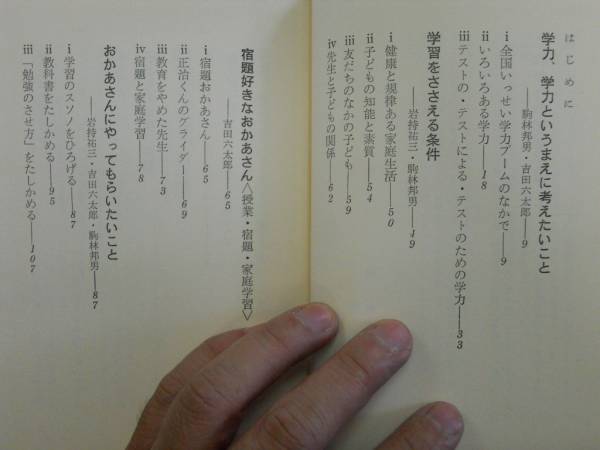 はじめに
学力、学力というまえに考えたいこと
——駒林邦男・吉田六太郎——9
ⅰ 全国いっせい学力ブームのなかで——9
ⅱ いろいろある学力——18
ⅲ テストの・テストによる・テストのための学力——33
学習をささえる条件
——岩持祐三・駒林邦男——49
ⅰ 健康と規律ある家庭生活——50
ⅱ 子どもの知能と素質——54
ⅲ 友だちのなかの子ども——59
ⅳ 先生と子どもの関係——62
宿題好きなおかあさん〈授業・宿題・家庭学習〉
——吉田六太郎——65
ⅰ 宿題おかあさん——65
ⅱ 正治くんのグライダー——69
ⅲ 教育をやめた先生——73
ⅳ 宿題と家庭学習——78
おかあさんにやってもらいたいこと
——岩持祐三・吉田六太郎・駒林邦男——87
ⅰ 学習のスソノをひろげる——87
ⅱ 教科書をたしかめる——95
ⅲ 「勉強のさせ方」をたしかめる——107